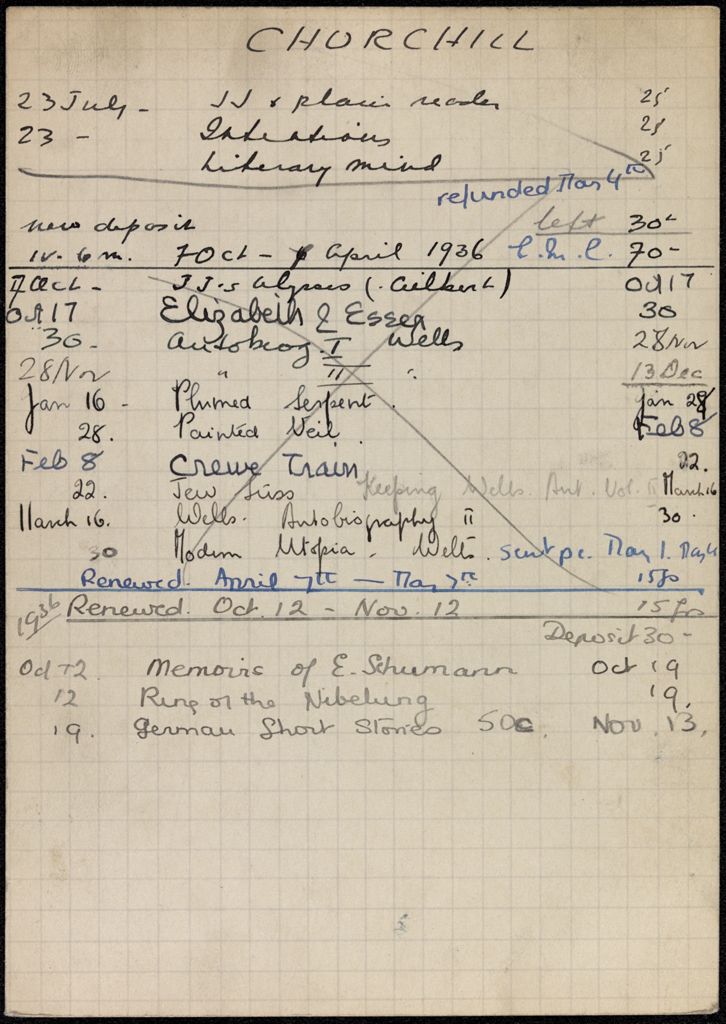 CHURCHILL
23 July - JJ & plain reader 25
23 - Intentions 25
Literary mind 25
refunded May 4th
new deposit left 30-
1v. 6 m. 7 Oct - 7 April 1936 70-
7 Oct - JJ's Ulysses (. Gilbert) Oct 17
Oct 17 Elizabeth & Essex 30
30. Autobiog. I Wells 28 Nov
28/Nov " II " 13 Dec
Jan 16 - Plumed Serpent. Jan 28
28. Painted Veil Feb 8
Feb 8 Crewe Train 22.
22. Jew Süss Keeping Wells. Aut. Vol. II March 16
March 16. Wells. Autobiography II 30.
30 Modern Utopia. Wells. sent pc. May 1. May 4
Renewed. April 7th - May 7th 15 frs
1936 Renewed. Oct. 12 - Nov. 12 15 frs
Deposit 30-
Oct 12. Memoirs of E. Schumann Oct 19
12 Ring of the Nibelung 19.
19. German Short Stories 50c. Nov. 13.